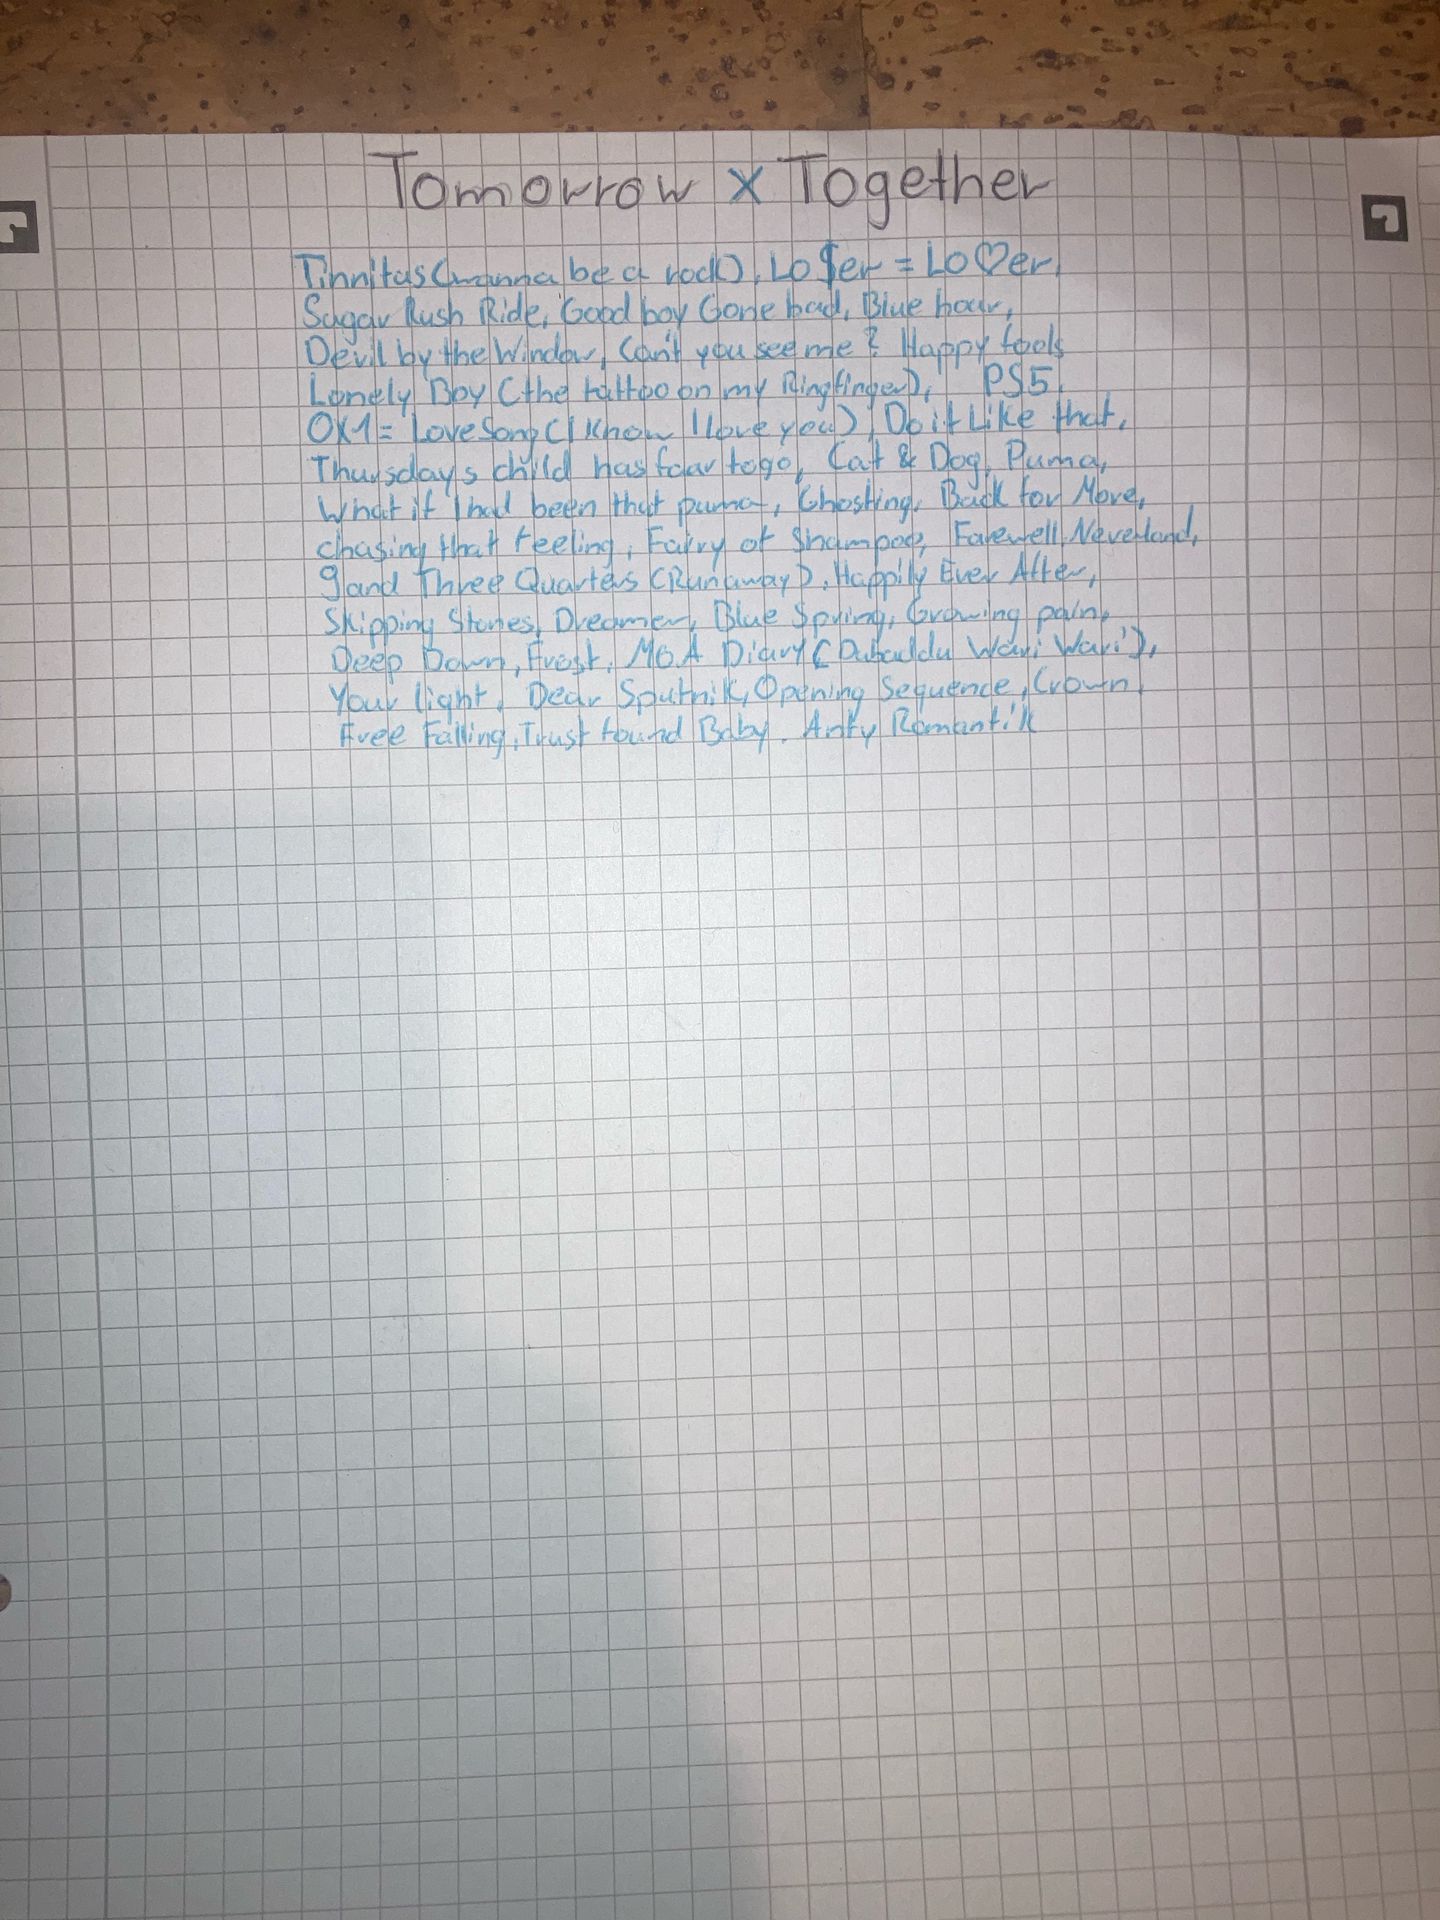 Tomorrow x Together
Tinnitus (wanna be a rock), Lo$er = Lo♡er,
Sugar Rush Ride, Good boy Gone bad, Blue hour,
Devil by the Window, Can't you see me? Happy fools
Lonely Boy (the tattoo on my Ringfinger), PS5,
0X1 = LoveSong (I Know I love you), Do it Like that,
Thursday's child has far to go, Cat & Dog, Puma,
What if I had been that puma, Ghosting, Back for More,
chasing that feeling, Fairy of Shampoo, Farewell, Neverland,
9 and Three Quarters (Runaway), Happily Ever After,
Skipping Stones, Dreamer, Blue Spring, Growing pain,
Deep Down, Frost, MOA Diary (Dubaddu Wari Wari),
Your light, Dear Sputnik, Opening Sequence, Crown,
Free Falling, Trust found Baby. Anty Romantik